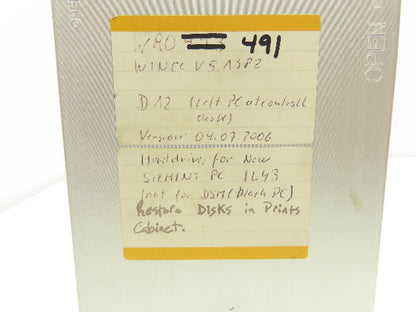 OPEN
WRO 491
WINCC V5.1SP2
D12 (Left PC at controll
desk)
Version 04.07.2006
Harddrive for New
SIEMENS PC IL43
(not for DSM (Black PC)
Restore Disks in Prints
Cabinet.